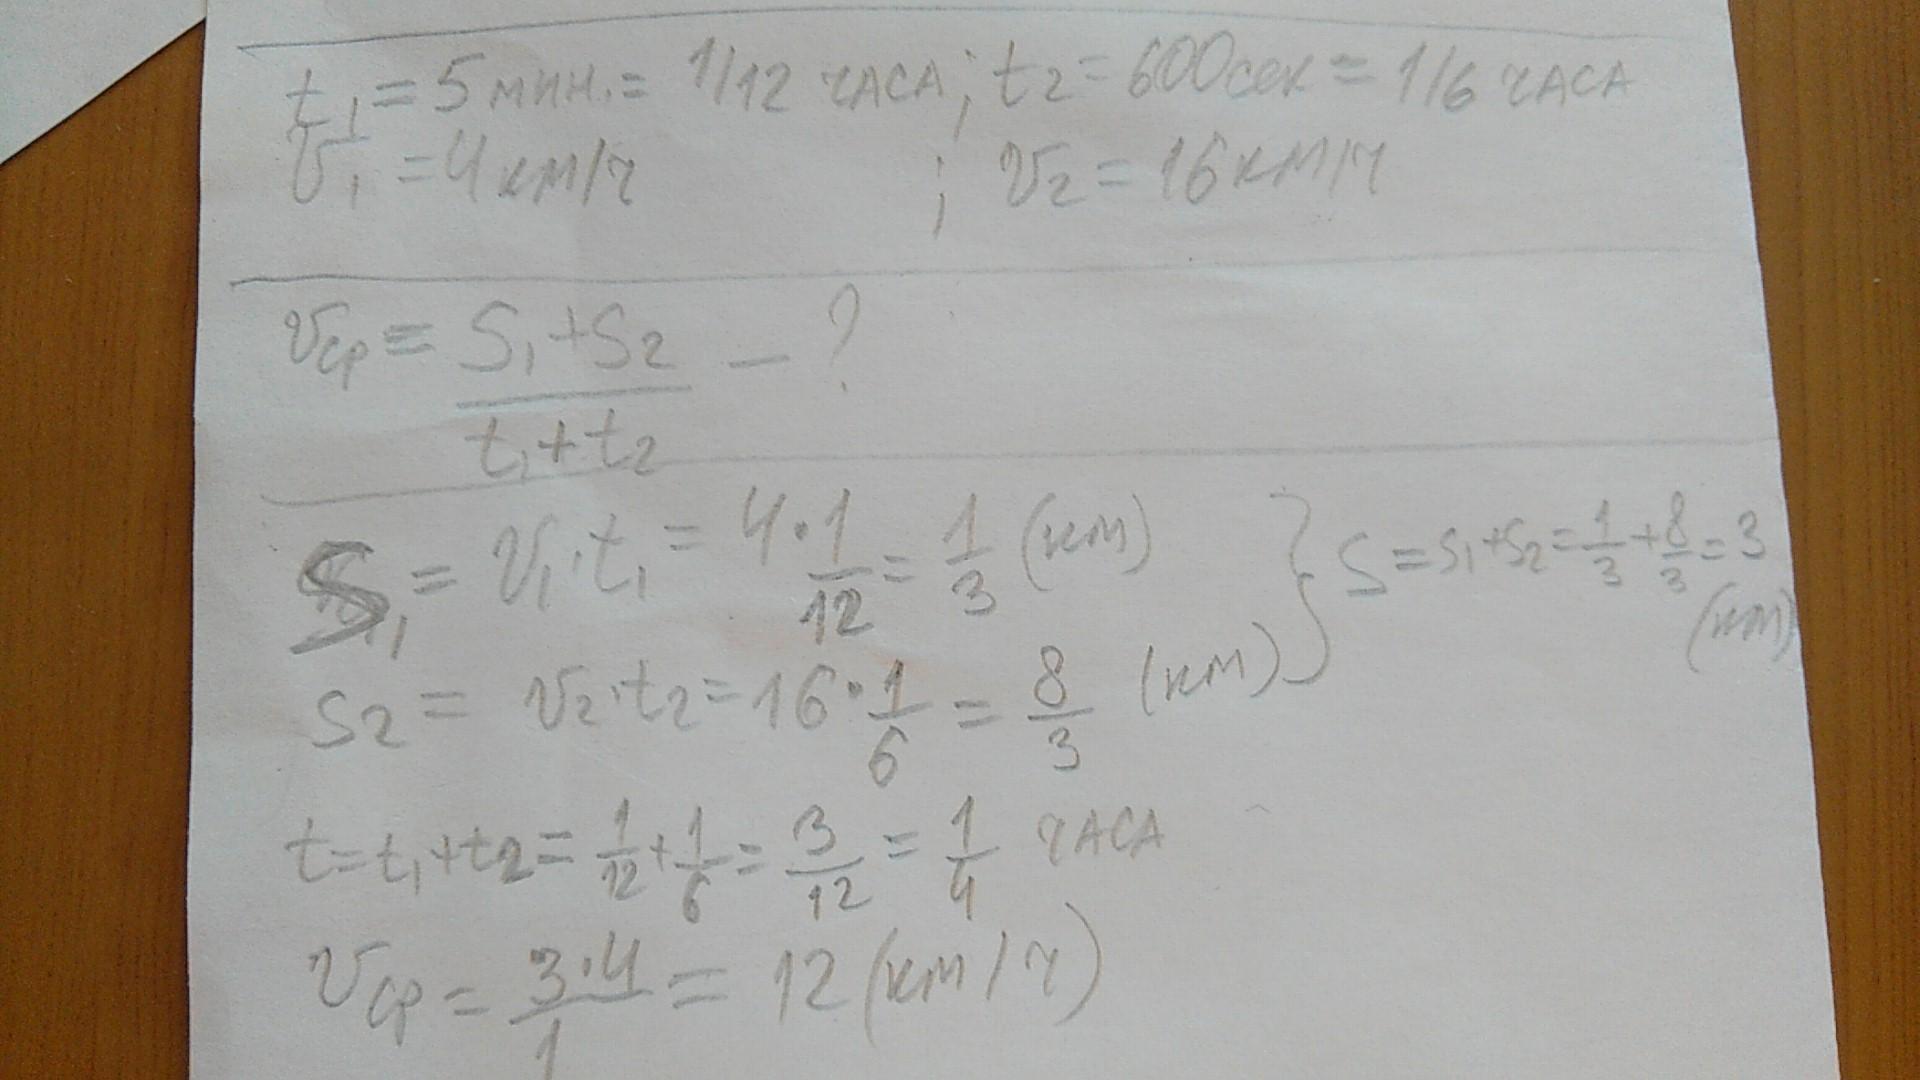 t₁ = 5 мин. = 1/12 часа; t₂ = 600 сек = 1/6 часа
v₁ = 4 км/ч ; v₂ = 16 км/ч
vср = (S₁+S₂)/(t₁+t₂) – ?
S₁ = v₁·t₁ = 4·1/12 = 1/3 (км) } S = S₁+S₂ = 1/3 + 8/3 = 3 (км)
S₂ = v₂·t₂ = 16·1/6 = 8/3 (км)
t = t₁+t₂ = 1/12 + 1/6 = 3/12 = 1/4 часа
vср = 3·4/1 = 12 (км/ч)